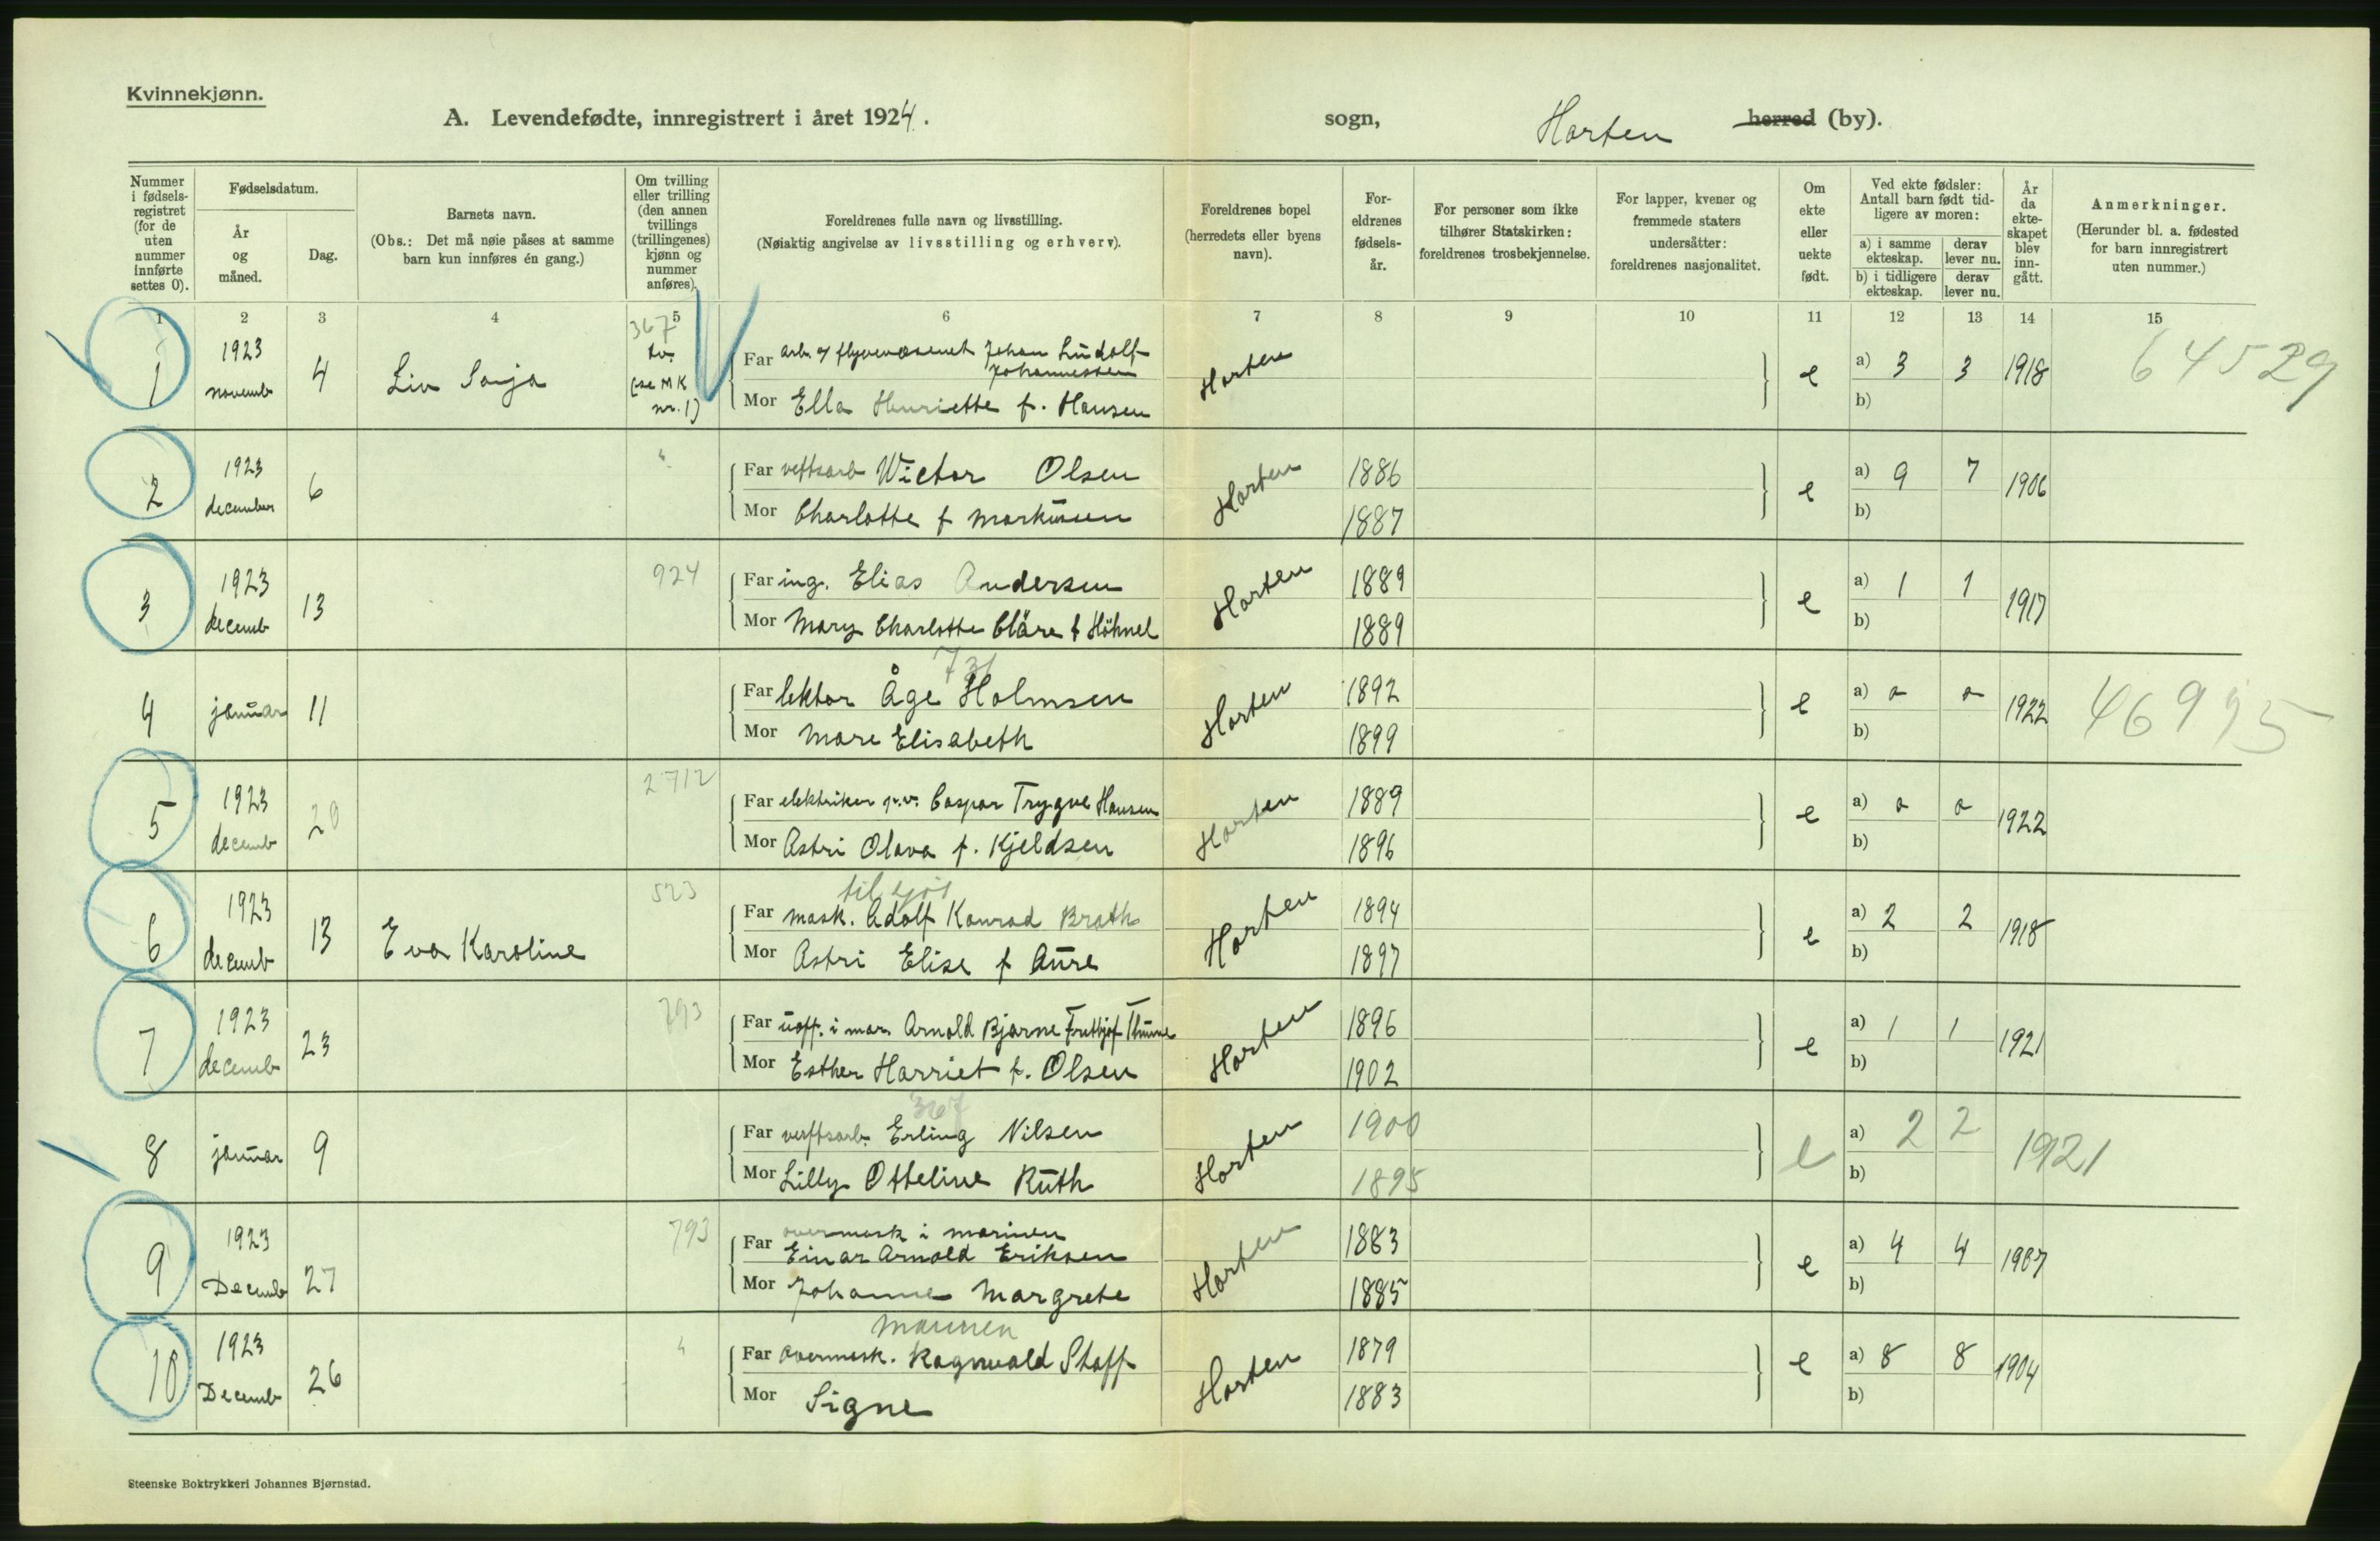 Kvinnekjønn.
A. Levendefødte, innregistrert i året 1924.
sogn, Horten herred (by).
Nummer i fødsels-registret (for de uten nummer innførte settes 0).
Fødselsdatum.
År og måned.
Dag.
Barnets navn.
(Obs.: Det må nøie påses at samme barn kun innføres én gang.)
Om tvilling eller trilling (den annen tvillings (trillingenes) kjønn og nummer anføres).
Foreldrenes fulle navn og livsstilling.
(Nøiaktig angivelse av livsstilling og erhverv).
Foreldrenes bopel (herredets eller byens navn).
For-eldrenes fødsels-år.
For personer som ikke tilhører Statskirken: foreldrenes trosbekjennelse.
For lapper, kvener og fremmede staters undersåtter: foreldrenes nasjonalitet.
Om ekte eller uekte født.
Ved ekte fødsler: Antall barn født tid-ligere av moren:
a) i samme ekteskap.
derav lever nu.
b) i tidligere ekteskap.
derav lever nu.
År da ekte-skapet blev inn-gått.
Anmerkninger.
(Herunder bl. a. fødested for barn innregistrert uten nummer.)
1 2 3 4 5 6 7 8 9 10 11 12 13 14 15
1 1923 novemb 4 Liv Sonja 367 tv. (se MK nr. 1)
Far arb. v flyvevæsenet Johan Ludolf Johannessen
Mor Ella Henriette f. Hansen
Horten e a) 3 3 1918 64529
b)
2 1923 december 6 "
Far veftsarb Wictor Olsen Horten 1886 e a) 9 7 1906
Mor Charlotte f Markussen 1887 b)
3 1923 decemb 13 924
Far ing. Elias Andersen Horten 1889 e a) 1 1 1917
Mor Mary Charlotte Cläre f Höhnel 1889 b)
731
4 januar 11
Far lektor Åge Holmsen Horten 1892 e a) o o 1922 46995
Mor Mare Elisabeth 1899 b)
5 1923 decemb 20 2712
Far elektriker p.v. Caspar Trygve Hansen Horten 1889 e a) o o 1922
Mor Astri Olava f. Kjeldsen 1896 b)
til sjøs
6 1923 decemb 13 Eva Karoline 523
Far mask. Adolf Konrad Brath Horten 1894 e a) 2 2 1918
Mor Astri Elise f Aure 1897 b)
7 1923 decemb 23 793
Far uoff. i mar. Arnold Bjarne Fritjof Horten 1896 e a) 1 1 1921
Mor Esther Harriet f. Olsen 1902 b)
367
8 januar 9
Far verftsarb. Erling Nilsen Horten 1900 e a) 2 2 1921
Mor Lilly Otteline Ruth 1895 b)
9 1923 Decemb 27 793
Far overmask i marinen
Einar Arnold Eriksen Horten 1883 e a) 4 4 1907
Mor Johanne Margrete 1885 b)
marinen
10 1923 Decemb 26 "
Far overmask. Ragnvald Staff Horten 1879 e a) 8 8 1904
Mor Signe 1883 b)
Steenske Boktrykkeri Johannes Bjørnstad.